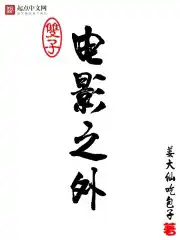 起点中文网
雙子
电影之外
姜大仙吃包子
著